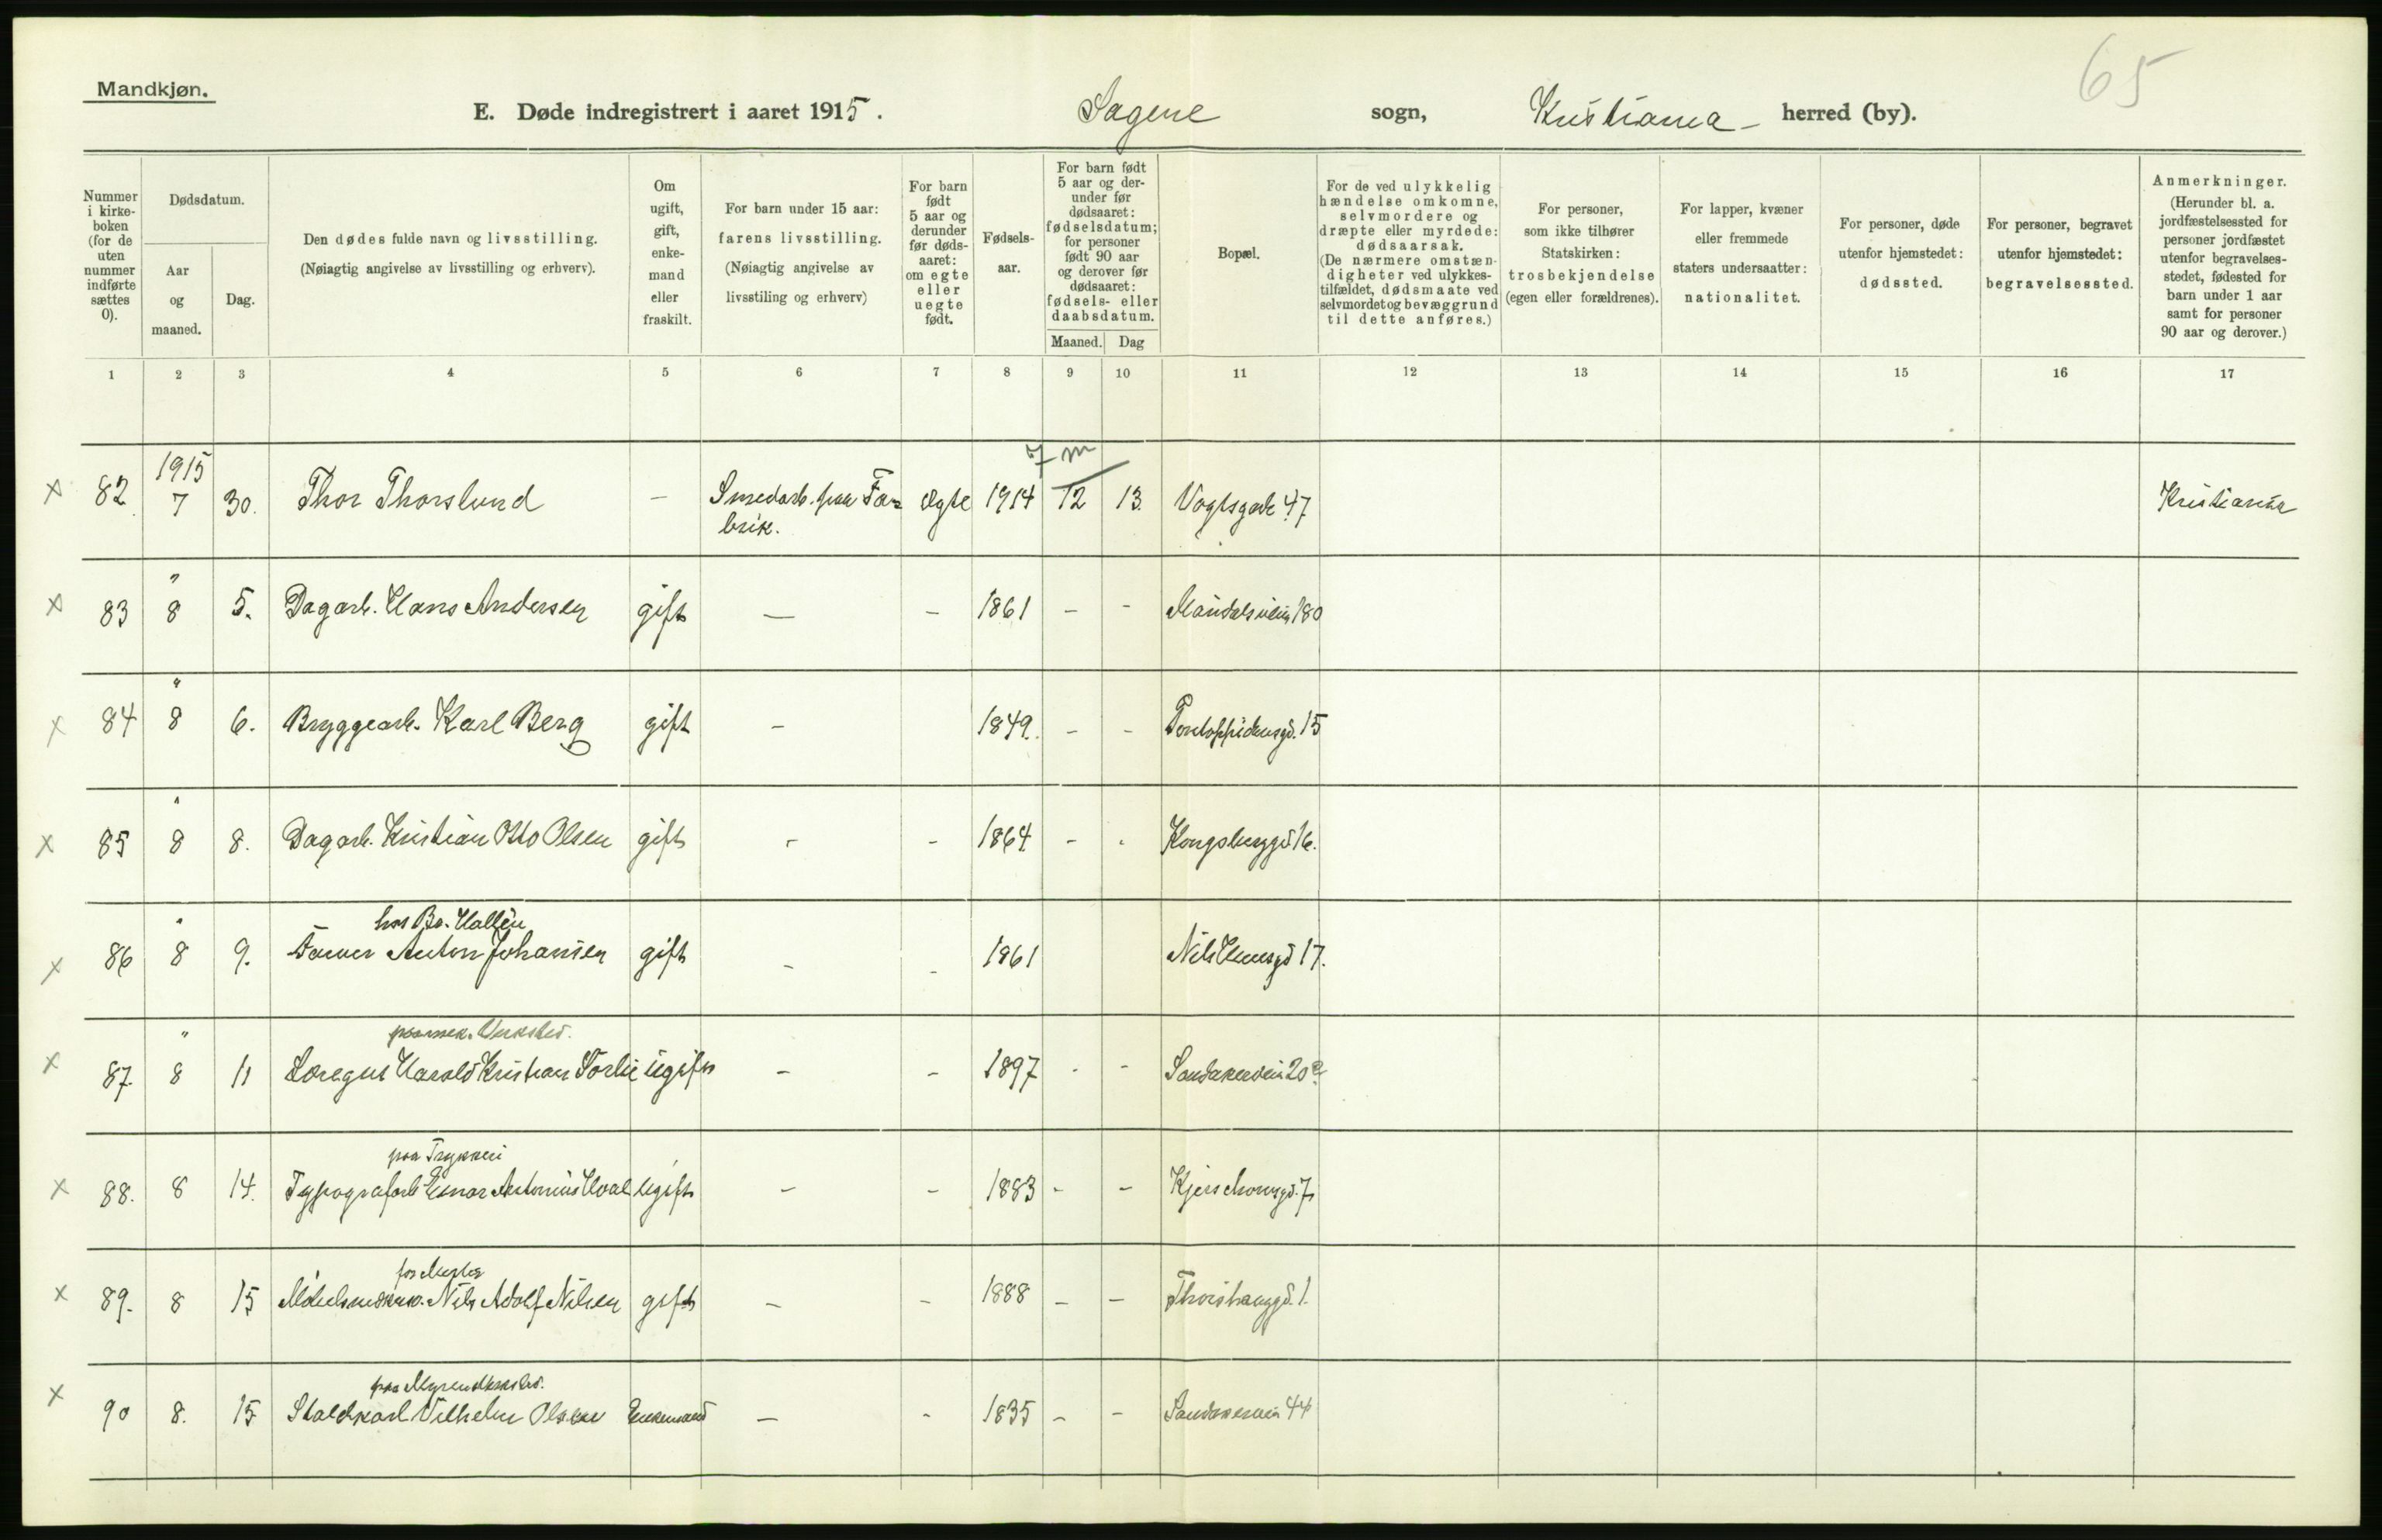 65
Mandkjøn.
E. Døde indregistrert i aaret 1915. Sagene sogn, Kristiania herred (by).
Nummer i kirkeboken (for de uten nummer indførte sættes 0).
Dødsdatum.
Aar og maaned.
Dag.
Den dødes fulde navn og livsstilling.
(Nøiagtig angivelse av livsstilling og erhverv).
Om ugift, gift, enkemand eller fraskilt.
For barn under 15 aar: farens livsstilling.
(Nøiagtig angivelse av livsstiling og erhverv)
For barn født 5 aar og derunder før dødsaaret: om egte eller uegte født.
Fødselsaar.
For barn født 5 aar og derunder før dødsaaret: fødselsdatum; for personer født 90 aar og derover før dødsaaret: fødsels- eller daabsdatum.
Maaned. Dag
Bopæl.
For de ved ulykkelig hændelse omkomne, selvmordere og dræpte eller myrdede: dødsaarsak.
(De nærmere omstændigheter ved ulykkestilfældet, dødsmaate ved selvmordet og bevæggrund til dette anføres.)
For personer, som ikke tilhører Statskirken: trosbekjendelse (egen eller forældrenes).
For lapper, kvæner eller fremmede staters undersaatter: nationalitet.
For personer, døde utenfor hjemstedet: dødssted.
For personer, begravet utenfor hjemstedet: begravelsessted.
Anmerkninger.
(Herunder bl. a. jordfæstelsessted for personer jordfæstet utenfor begravelsesstedet, fødested for barn under 1 aar samt for personer 90 aar og derover.)
1 2 3 4 5 6 7 8 9 10 11 12 13 14 15 16 17
1915 7 m
x 82 7 30. Thor Thorslund — Smedarb. paa Fabrik. Ægte 1914 12 13. Vogtsgade 47 Kristiania
x 83 " 8 5. Dagarb. Hans Andersen gift — – 1861 – – 180
x 84 " 8 6. Bryggearb. Karl Berg gift – 1849. – – Pontoppidansgd. 15
x 85 " 8 8. Dagarb. Kristian Otto Olsen gift – – 1864 – - Kongsberggd 16.
hos Br. Hallén
x 86 " 8 9. Anton Johansen gift – – 1861 17.
paa mek. Verksted.
x 87. " 8 11 Læregut Harald Kristian Sørlie ugift – – 1897 - - Sandakerveien 20
paa Trykkeri
x 88. 8 14. Typografarb Einar Antonius Hval ugift – – 1883 - – Kjerschowsgd. 7
x 89. 8 15 Nils Adolf Nilsen gift – – 1888 – – Thorshauggd. 1.
paa Myrens Verksted.
x 90 8. 15 Staldkarl Vilhelm Olsen Enkemand — - 1835 – – Sandakerveien 44